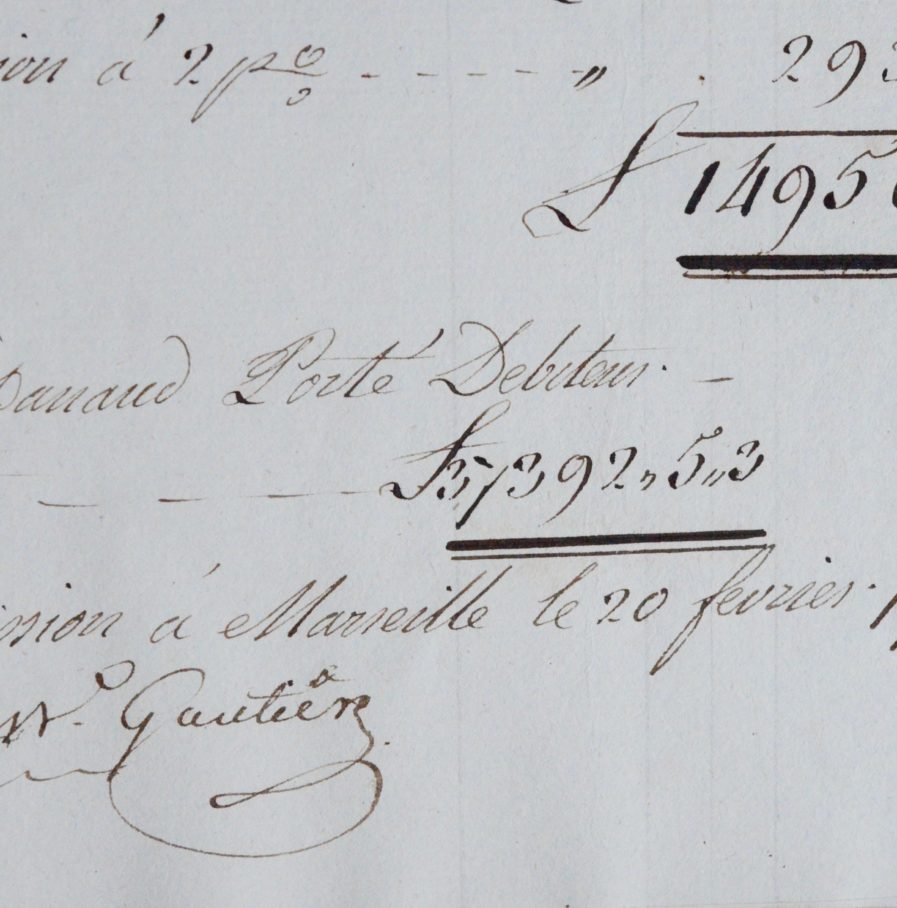 ion à 2 p% - - - - - " . 293
£ 1495
Porté Debiteur. -
- - - - £ 57392,,5,,3
ssion à Marseille le 20 fevrier.
Gautier